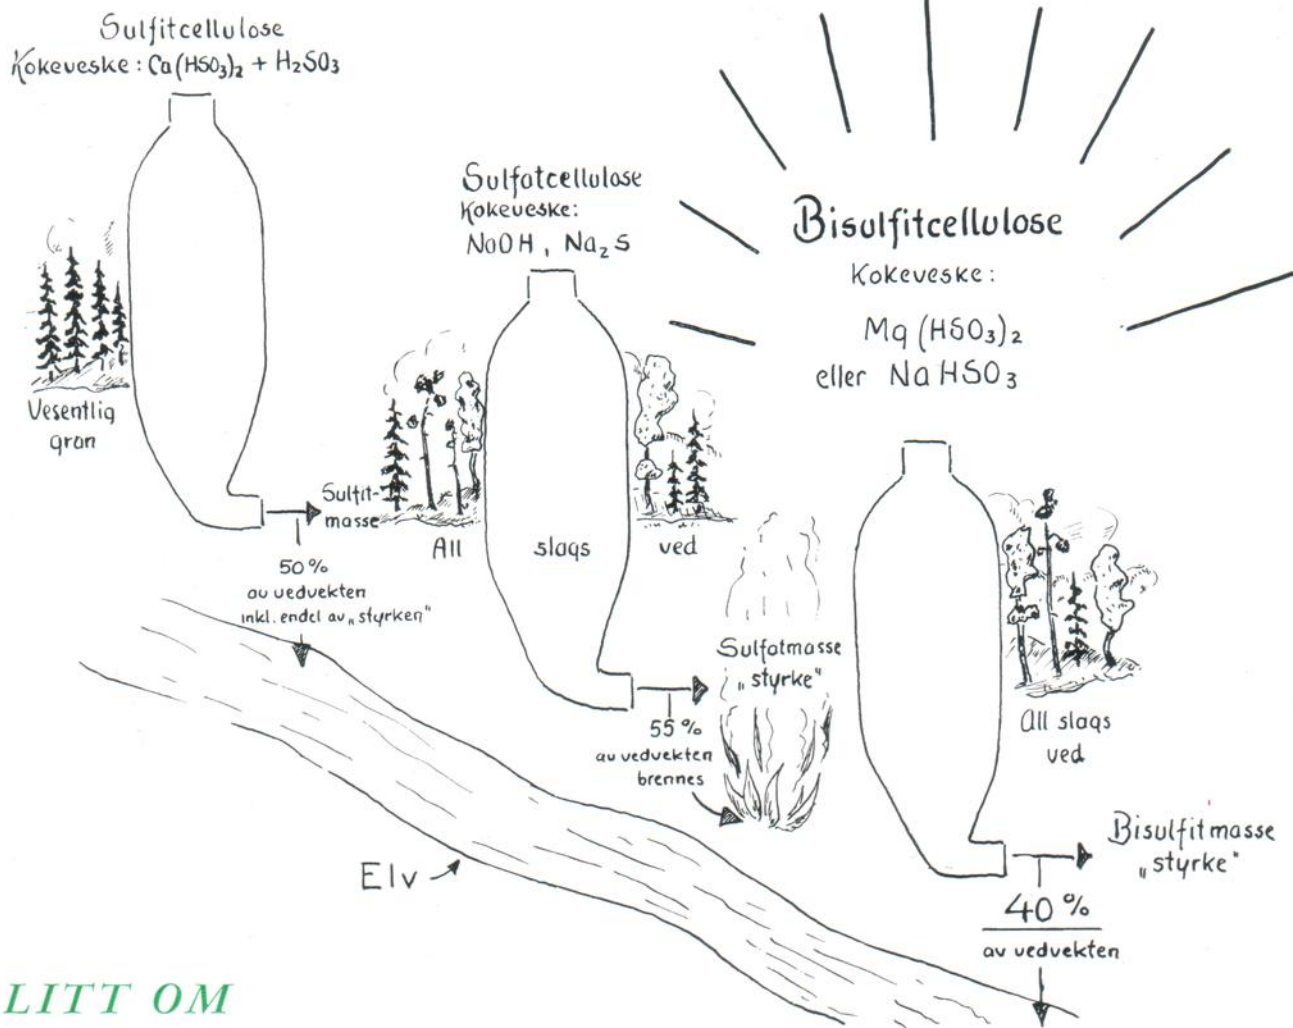 Sulfitcellulose
Kokeveske: Ca(HSO₃)₂ + H₂SO₃
Vesentlig
gran
Sulfit-
masse
50%
av vedvekten
inkl. endel av „styrken"
Sulfatcellulose
Kokeveske:
NaOH, Na₂S
All slags ved
Sulfatmasse
„styrke"
55%
av vedvekten
brennes
Bisulfitcellulose
Kokeveske:
Mg(HSO₃)₂
eller NaHSO₃
All slags
ved
Bisulfitmasse
„styrke"
40%
av vedvekten
Elv
LITT OM